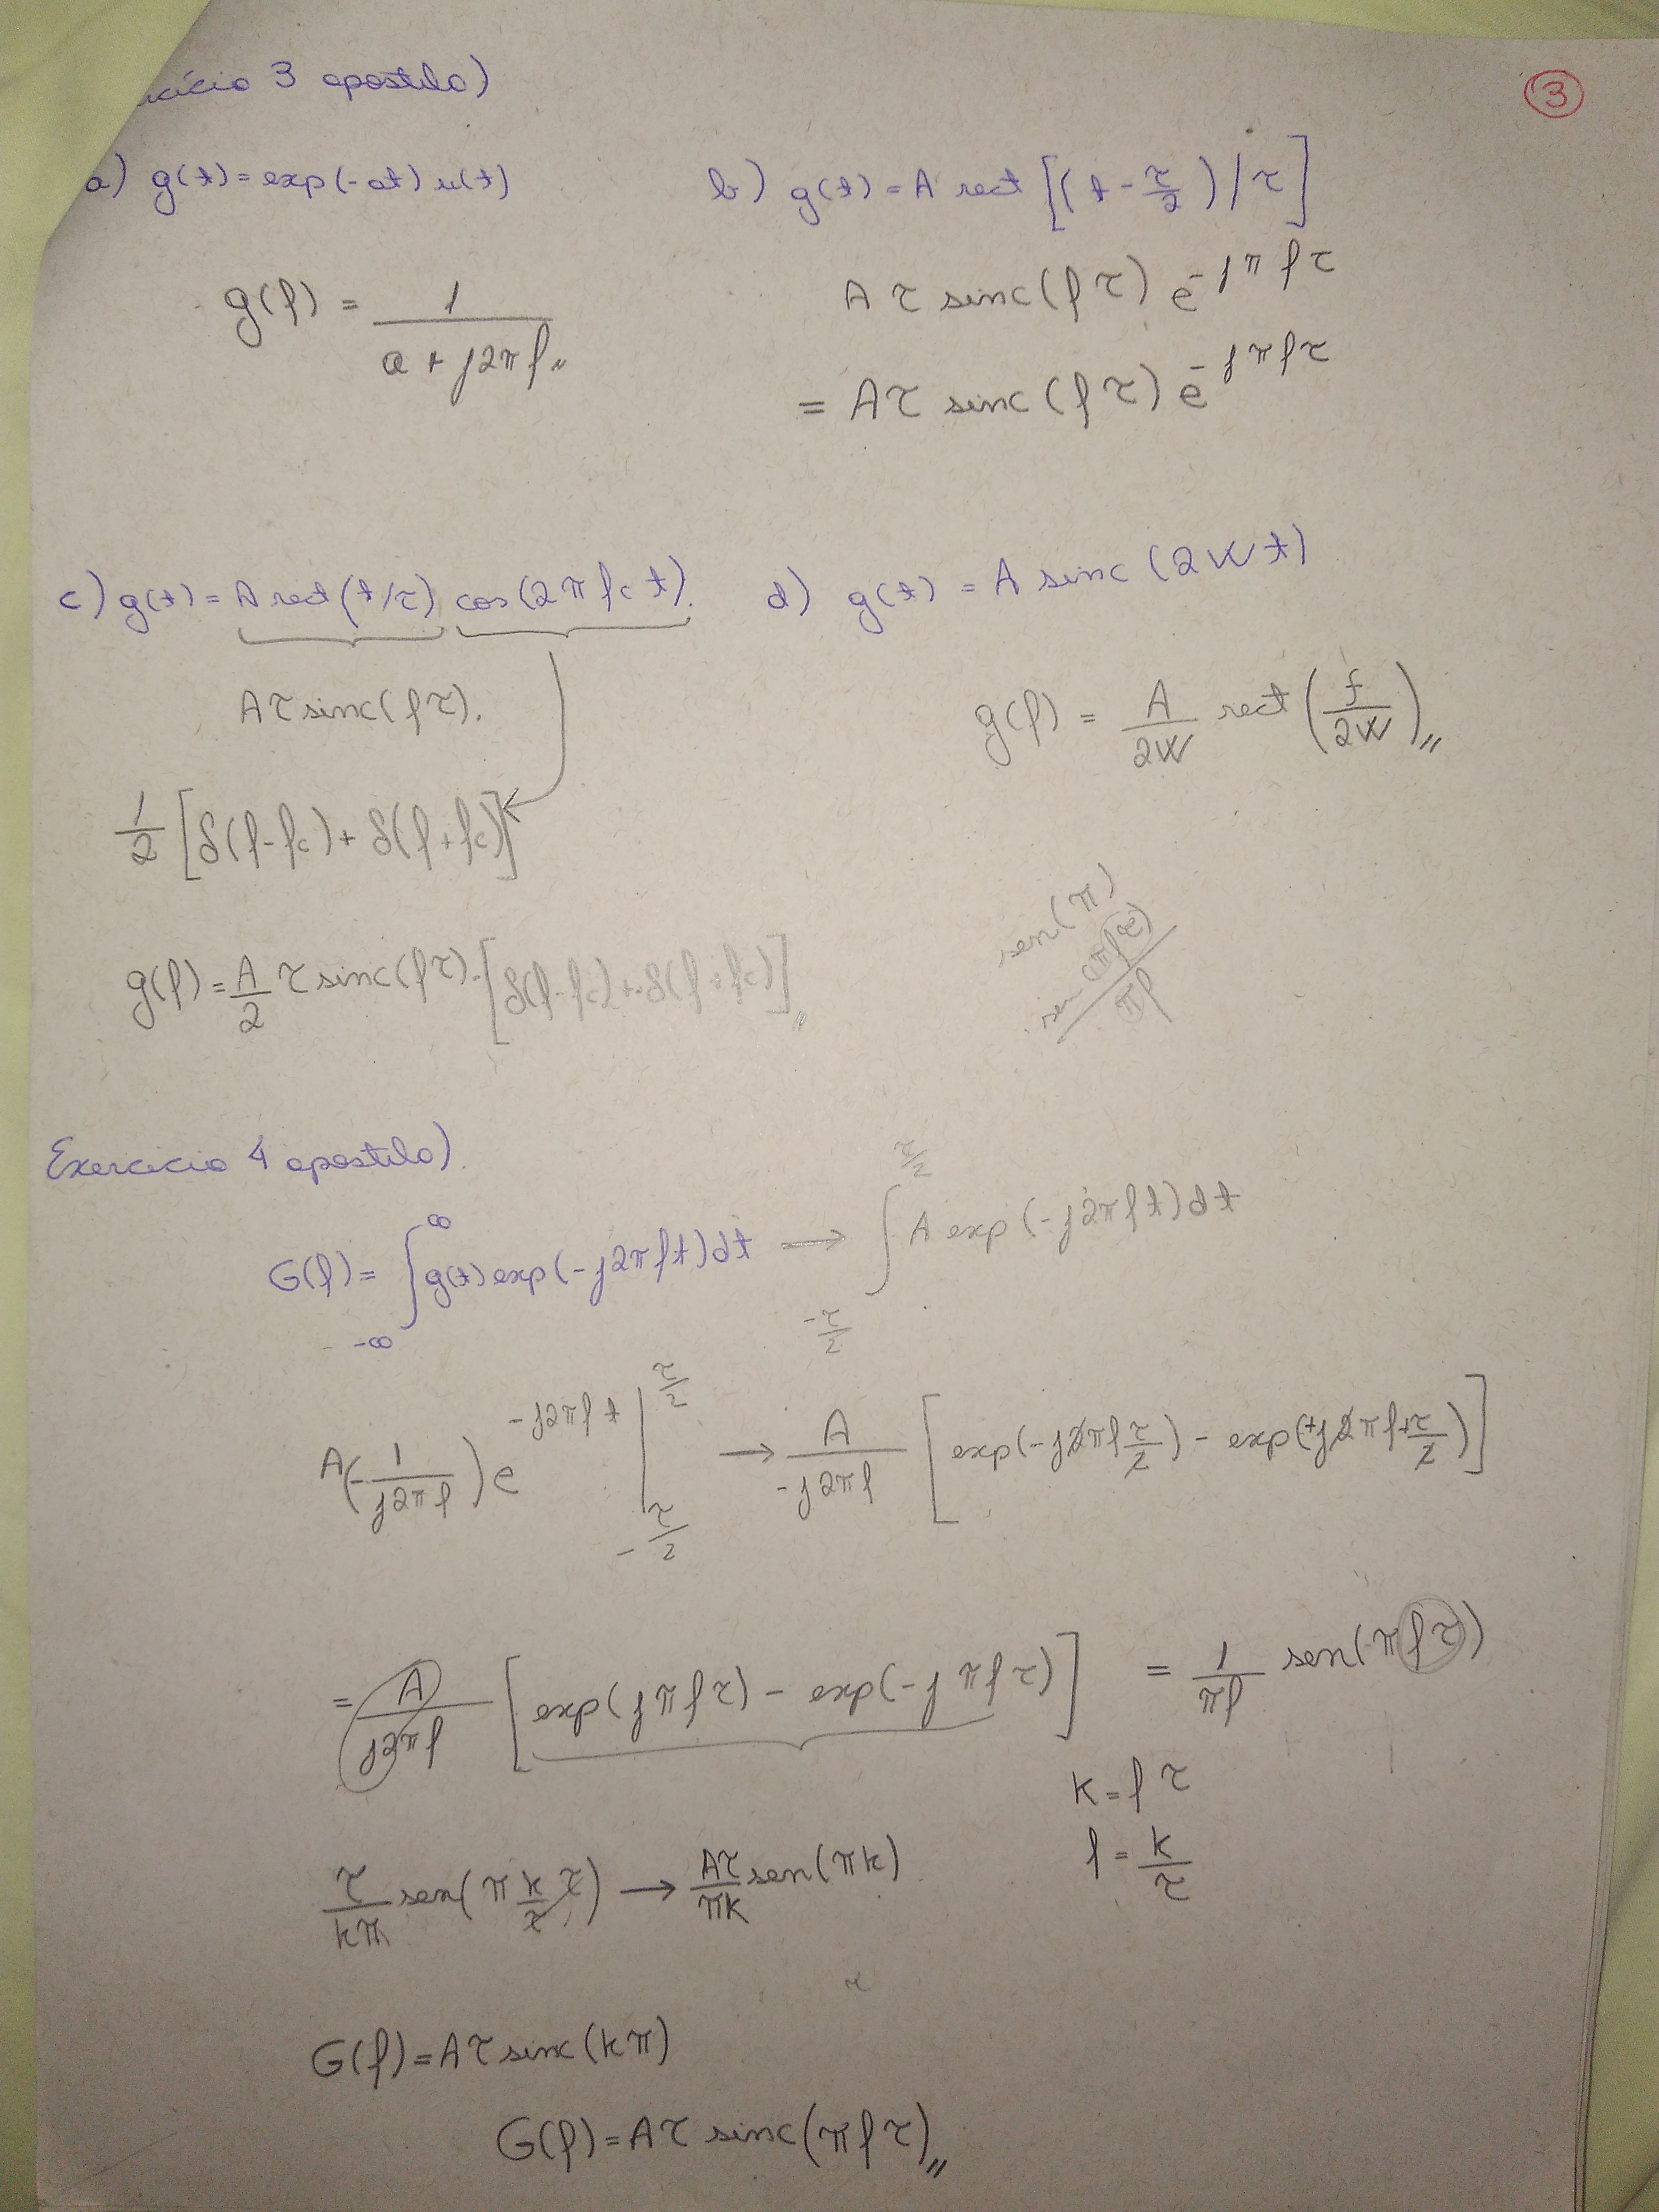 3
cício 3 apostila)
a) g(t) = exp(-at) u(t)
g(f) = 1/(a + j2πf) //
b) g(t) = A rect [(t - τ/2) / τ]
A τ sinc(f τ) e^(-jπfτ)
= A τ sinc(f τ) e^(-jπfτ)
c) g(t) = A rect(t/τ) cos(2πfc t).
Aτ sinc(fτ).
1/2 [δ(f-fc) + δ(f+fc)]
g(f) = A/2 τ sinc(fτ) · [δ(f-fc) + δ(f+fc)] //
d) g(t) = A sinc (2Wt)
g(f) = A/2W rect (f/2W) //
sen(π)
sen(πfτ)/πf
Exercício 4 apostila)
G(f) = ∫_{-∞}^{∞} g(t) exp(-j2πft)dt → ∫_{-τ/2}^{τ/2} A exp(-j2πft)dt
A(-1/j2πf) e^(-j2πft) |_{-τ/2}^{τ/2} → A/(-j2πf) [exp(-j2πf τ/2) - exp(+j2πf+τ/2)]
= A/j2πf [exp(jπfτ) - exp(-jπfτ)] = 1/πf sen(πfτ)
k = fτ
f = k/τ
τ/kπ sen(π k/τ τ) → Aτ/πk sen(πk)
G(f) = Aτ sinc(kπ)
G(f) = Aτ sinc(πfτ) //